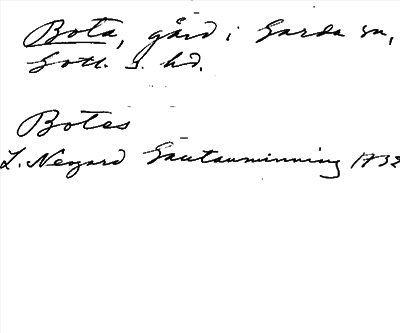 Bota, gård i Garda sn,
Gotl. s. hd.
Botes
L. Neogard Gautauminning 1732